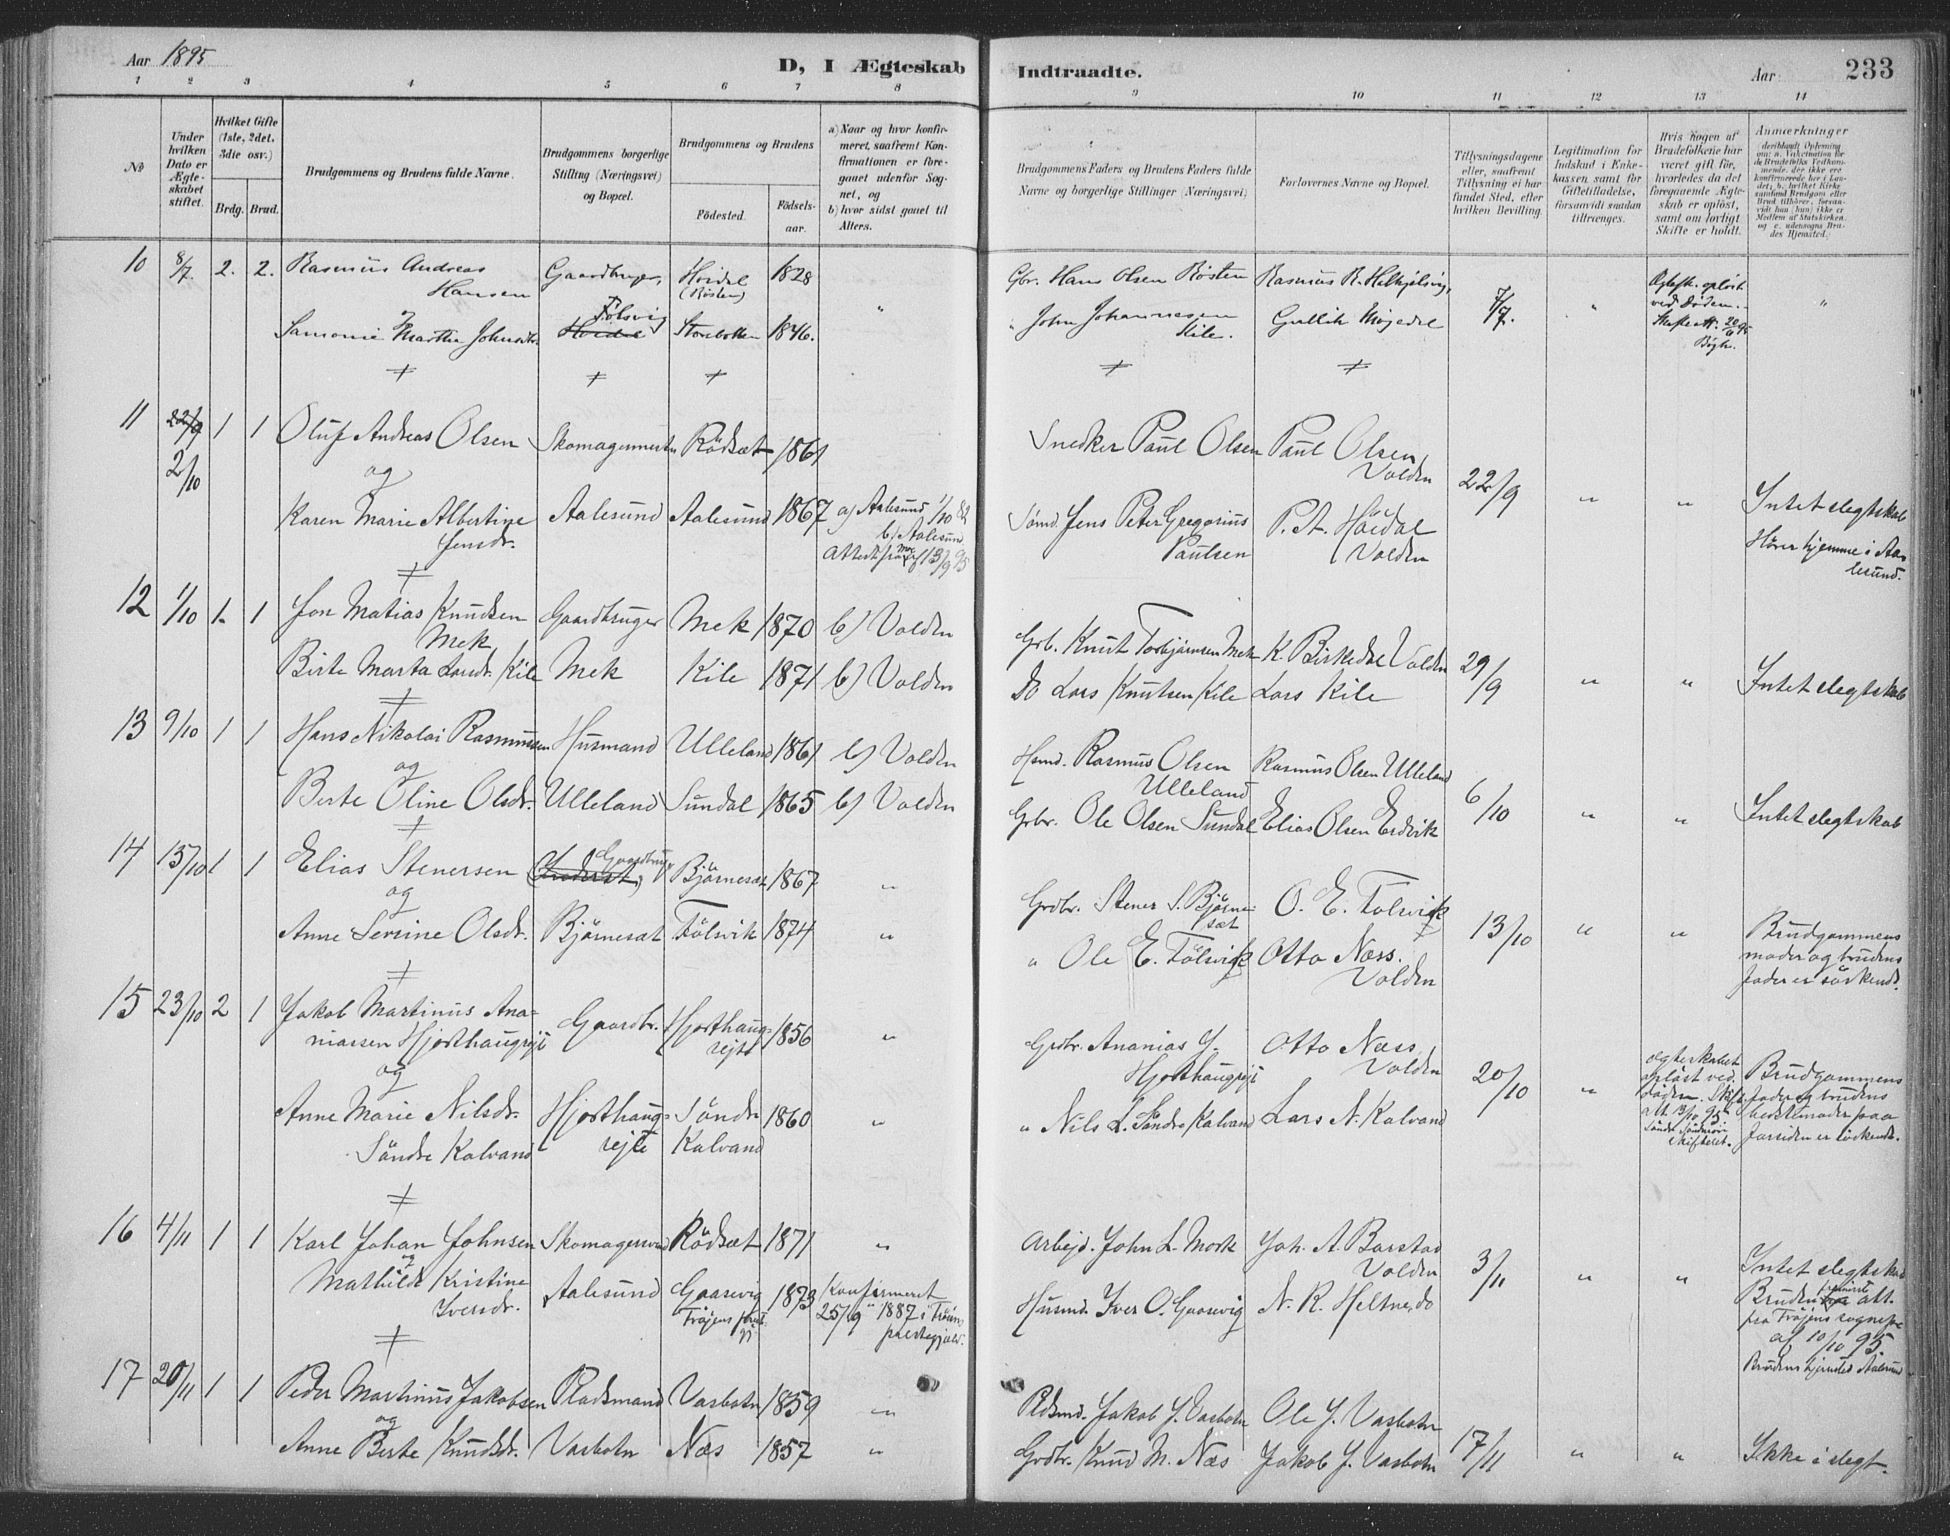 Aar 1895
D, I Ægteskab Indtraadte.
Aar
233
1 2 3 4 5 6 7 8 9 10 11 12 13 14
№
Under hvilken Dato er Ægteskabet stiftet.
Hvilket Gifte (1ste, 2det, 3die osv.)
Brdg. Brud.
Brudgommens og Brudens fulde Navne.
Brudgommens borgerlige Stilling (Næringsvei) og Bopæl.
Brudgommens og Brudens
Födested.
Födselsaar.
a) Naar og hvor konfirmeret, saafremt Konfirmationen er foregaaet udenfor Sognet, og
b) hvor sidst gaaet til Alters.
Brudgommens Faders og Brudens Faders fulde Navne og borgerlige Stillinger (Næringsvei)
Forlovernes Navne og Bopæl.
Tillysningsdagene eller, saafremt Tillysning ei har fundet Sted, efter hvilken Bevilling.
Legitimation for Indskud i Enkekassen samt for Giftetilladelse, forsaavidt saadan tiltrænges.
Hvis Nogen af Brudefolkene har været gift för, hvorledes da det foregaaende Ægteskab er oplöst, samt om lovligt Skifte er holdt.
Anmærkninger
10 8/7. 2. 2. Rasmus Andreas Hansen Gaardbruger, Hovdal (Røsten) 1828 " Gbr. Hans Olsen Røsten Rasmus R. Helkjelsvig,
og Følsvig
Samonie Marthe Johnsdtr. Hovdal Storebotten 1846. " John Johannesen Kile. Gullik Mojedal 7/7. " Ægtesk. opløst ved Døden. Skifteatt. "
11 22/9 2/10 1 1 Oluf Andreas Olsen Skomagermester Rödsæt 1861 Snedker Paul Olsen Paul Olsen Volden
og
Karen Marie Albertine Jensdr. Aalesund Aalesund 1867 a) Aalesund 1/10 82 b) Aalesund Attest fra 13/9 95 Sømd. Jens Peter Gregorius Paulsen P. A. Höidal Volden 22/9 " " Intet slegtskab Hører hjemme i Aalesund.
12 1/10 1 1 Jon Matias Knudsen Mek Gaardbruger Mek 1870 b) Volden Grb. Knut Torbjørnsen Mek K. Birkedal Volden
Birte Marta Larsdr. Kile Mek Kile 1871 b) Volden Do Lars Knutsen Kile Lars Kile 29/9 " " Intet slegtskab
13 9/10 1 1 Hans Nikolai Rasmussen Husmand Ulleland 1861 b) Volden Hsmd. Rasmus Olsen Ulleland Rasmus Olsen Ulleland
og
Berte Oline Olsdr. Ulleland Sundal 1865 b) Volden Grbr. Ole Olsen Sundal Elias Olsen Ervik 6/10 " " Intet slegtskab
14 15/10 1 1 Elias Stenersen Gaardbruger Bjørnesæt 1867 " Grdbr. Stener S. Bjørnesæt O. E. Fölsvik
og
Anne Serine Olsdr. Bjørnesæt Fölsvik 1874 " " Ole E. Fölsvik Otto Næss. Volden 13/10 " " Brudgommens moder og brudens fader er söskende.
15 23/10 2 1 Jakob Martinus Ananiassen Hjorthaugrejt Gaardbr. Hjorthaugrejte 1856 " Grdbr. Ananias J. Hjorthaugrejt Otto Næss, Volden
og
Anne Marie Nilsdr. Söndre Kalvand Hjorthaugrejte Söndre Kalvand 1860 " " Nils L. Söndre Kalvand Lars N. Kalvand 20/10 " ægteskabet oplöst ved döden. Skifte att. 13/10 95 Brudgommens fader og brudens bedstemoder paa farsiden er söskende.
16 4/11 1 1 Karl Johan Johnsen Skomagersvend Rödsæt 1871 " Arbejd. John L. Mork Joh. A. Barstad Volden
og
Mathilde Kristine Iversdr. Aalesund Gaasevig Fröjens 1873 Konfirmeret 25/9 1887 i Fröjens prestegjæld. Husmd. Iver O. Gaasevig N. R. Heltne, do 3/11 " " Intet slegtskab Bruden att. fra Fröjens sognepr. af 10/10 95. Brudens hjemsted Aalesund
17 20/11 1 1 Peder Martinus Jakobsen Pladsmand Vasbotn 1859 " Pldsmd. Jakob J. Vasbotn Ole J. Vasbotn
og
Anne Berte Knudsdr. Vasbotn Næs 1857 " Grdbr. Knud M. Næs Jakob J. Vasbotn 17/11 " " Ikke i slegt.